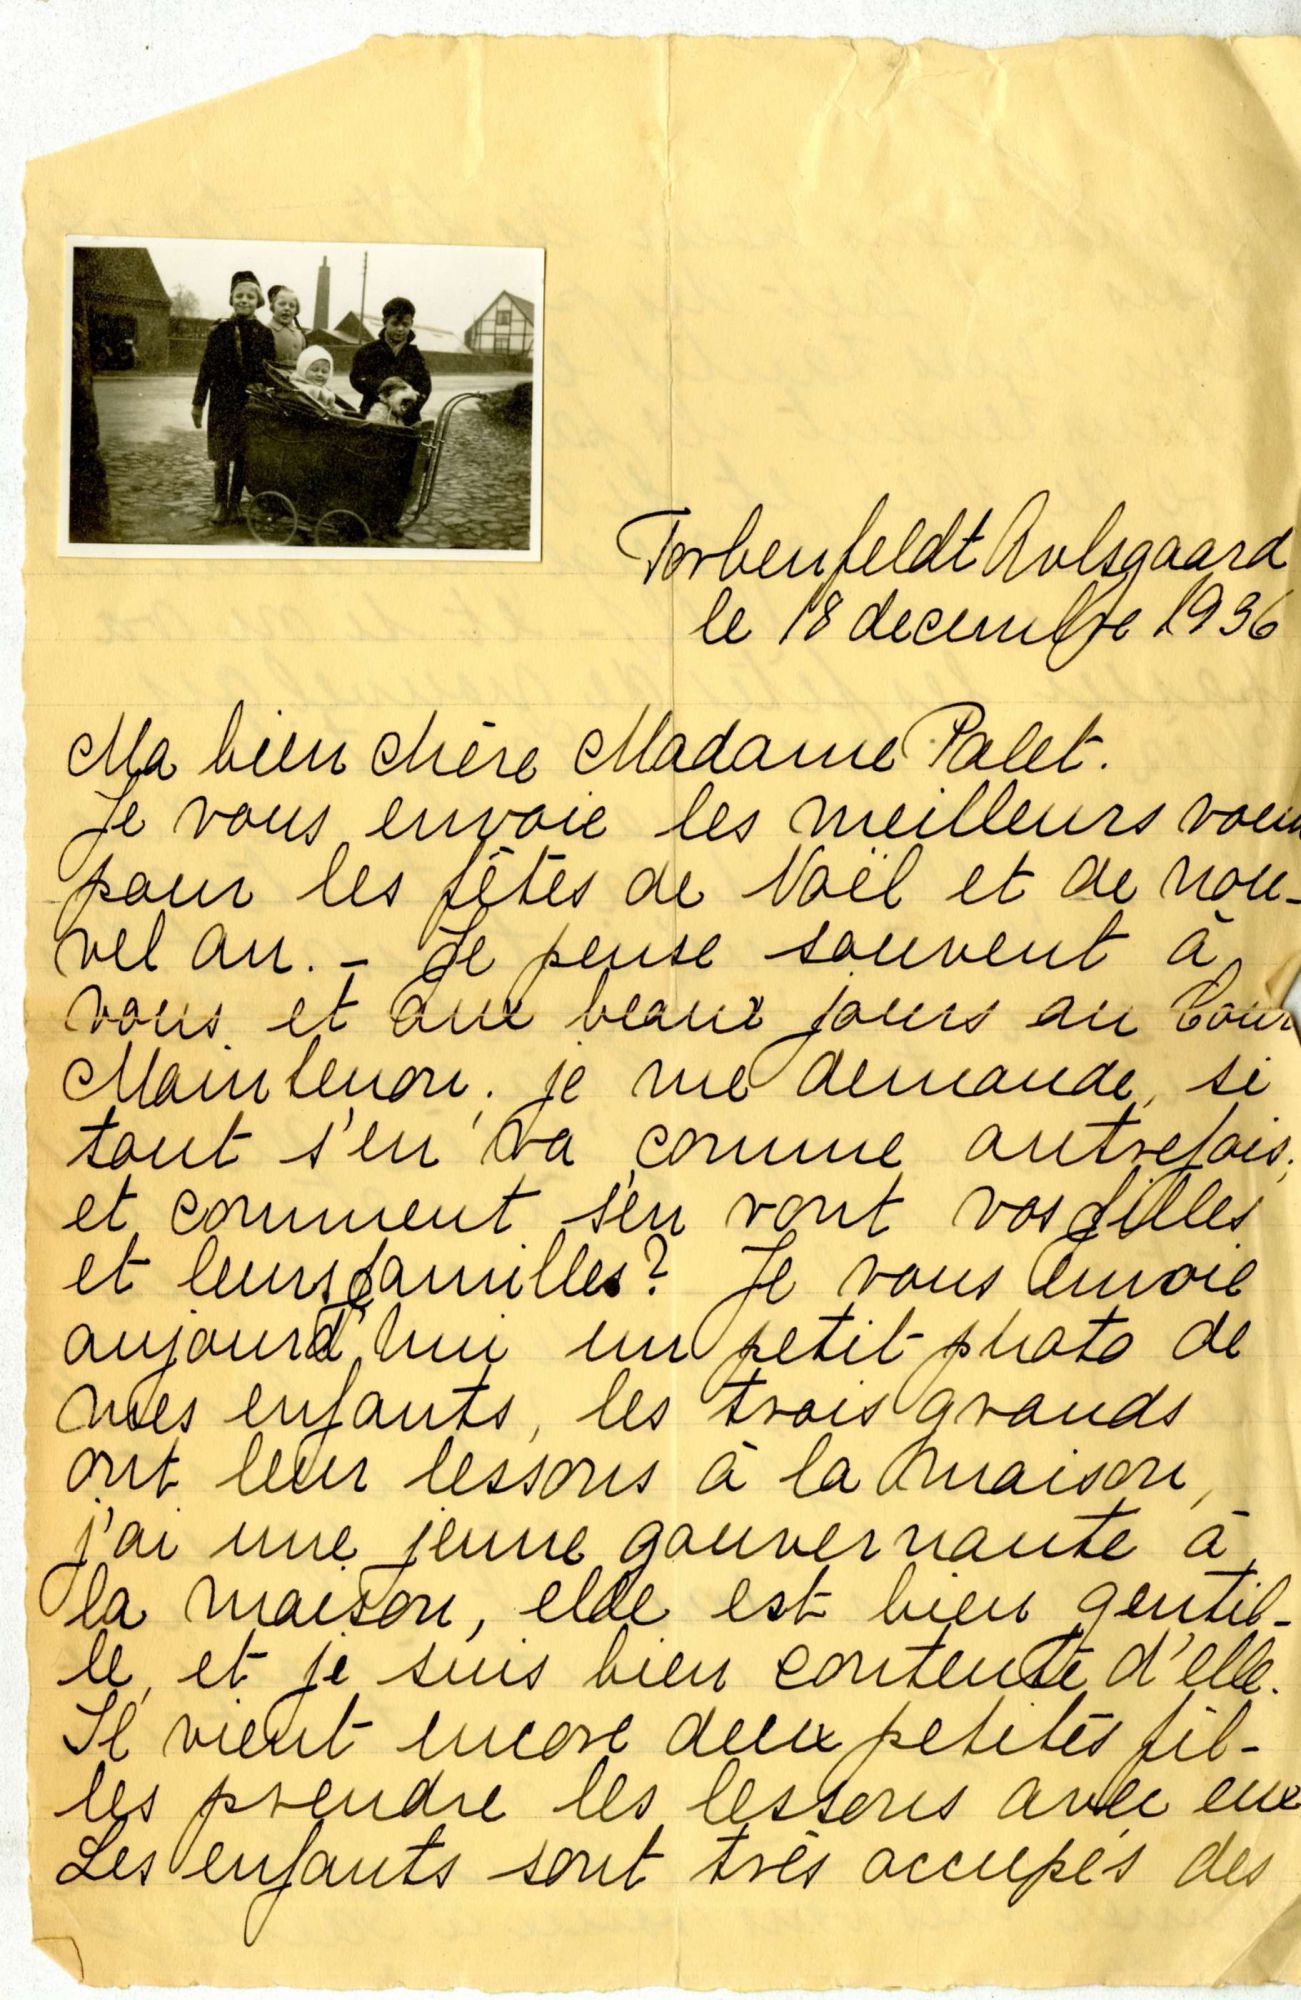 Torbenfeldt Avlsgaard
le 18 decembre 1936
Ma bien chère Madame Palet.
Je vous envoie les meilleurs voeu
pour les fêtes de Noël et de nou-
vel an. - Je pense souvent à
vous et aux beaux jours au Cour
Maintenon; je me demande, si
tout s'en va comme autrefois;
et comment s'en vont vos filles
et leurs familles? Je vous envoie
aujourd'hui un petit photo de
mes enfants, les trois grands
ont leur lessons à la maison,
j'ai une jeune gouvernante à
la maison, elle est bien gentil-
le, et je suis bien contente d'elle.
Il vient encore deux petites fil-
les prendre les lessons avec eux
Les enfants sont très occupés des